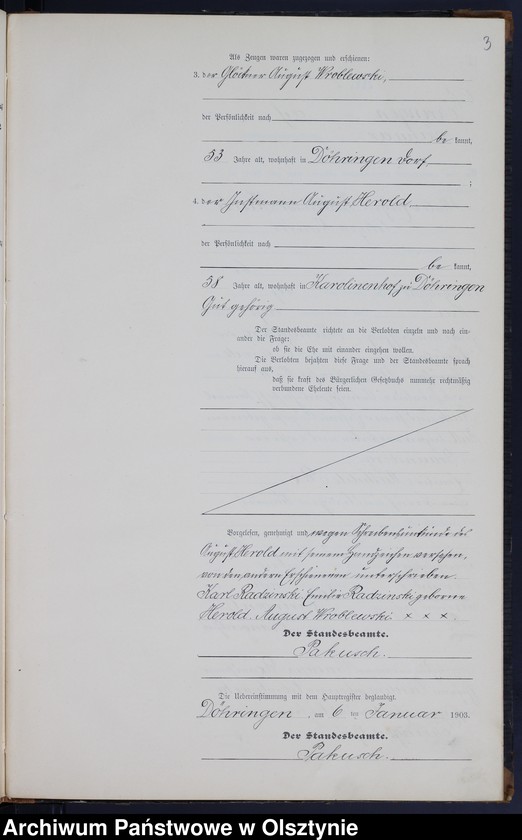 3
Als Zeugen waren zugezogen und erschienen:
3. der Glöckner August Wroblewski,
der Persönlichkeit nach
be kannt,
53 Jahre alt, wohnhaft in Döhringen Dorf
;
4. der Instmann August Herold
der Persönlichkeit nach
be kannt,
58 Jahre alt, wohnhaft in Karolinenhof zu Döhringen
Gut gehörig
Der Standesbeamte richtete an die Verlobten einzeln und nach ein-
ander die Frage:
ob sie die Ehe mit einander eingehen wollen.
Die Verlobten bejahten diese Frage und der Standesbeamte sprach
hierauf aus,
daß sie kraft des Bürgerlichen Gesetzbuchs nunmehr rechtmäßig
verbundene Eheleute seien.
Vorgelesen, genehmigt und wegen Schreibensunkunde des
August Herold mit seinem Handzeichen versehen,
von den andern Erschienenen unterschrieben.
Karl Radzinski Emilie Radzinski geborene
Herold. August Wroblewski. × × ×.
Der Standesbeamte.
Pakusch.
Die Uebereinstimmung mit dem Hauptregister beglaubigt.
Döhringen, am 6 ten Januar 1903.
Der Standesbeamte.
Pakusch.
Archiwum Państwowe w Olsztynie